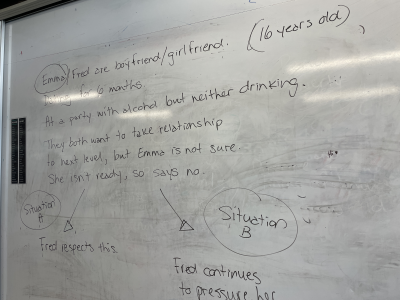 Emma/Fred are boyfriend/girlfriend. (16 years old)
for 6 months.
At a party with alcohol but neither drinking.
They both want to take relationship
to next level, but Emma is not sure.
She isn't ready, so says no.
Situation
A
Situation
B
Fred respects this.
Fred continues
to pressure her